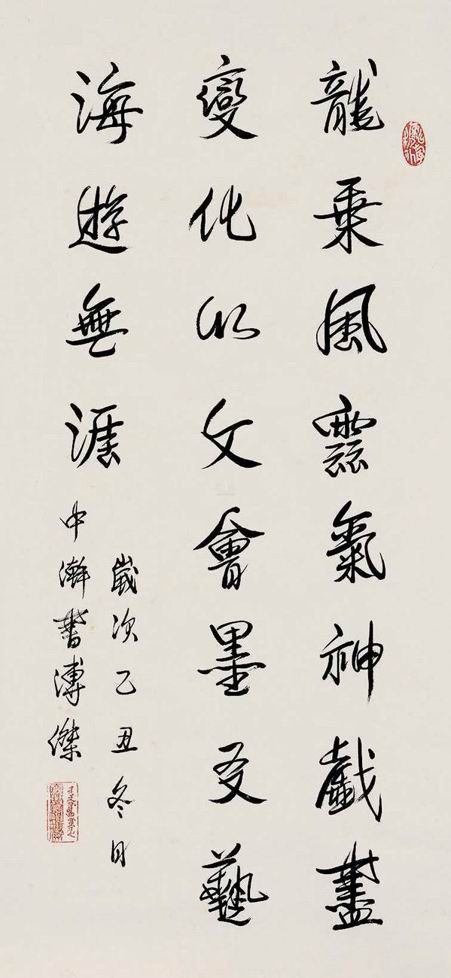 龍乗風雲氣神戲盡
變化以文會墨友藝
海遊無涯
歲次乙丑冬日
中澣書溥傑